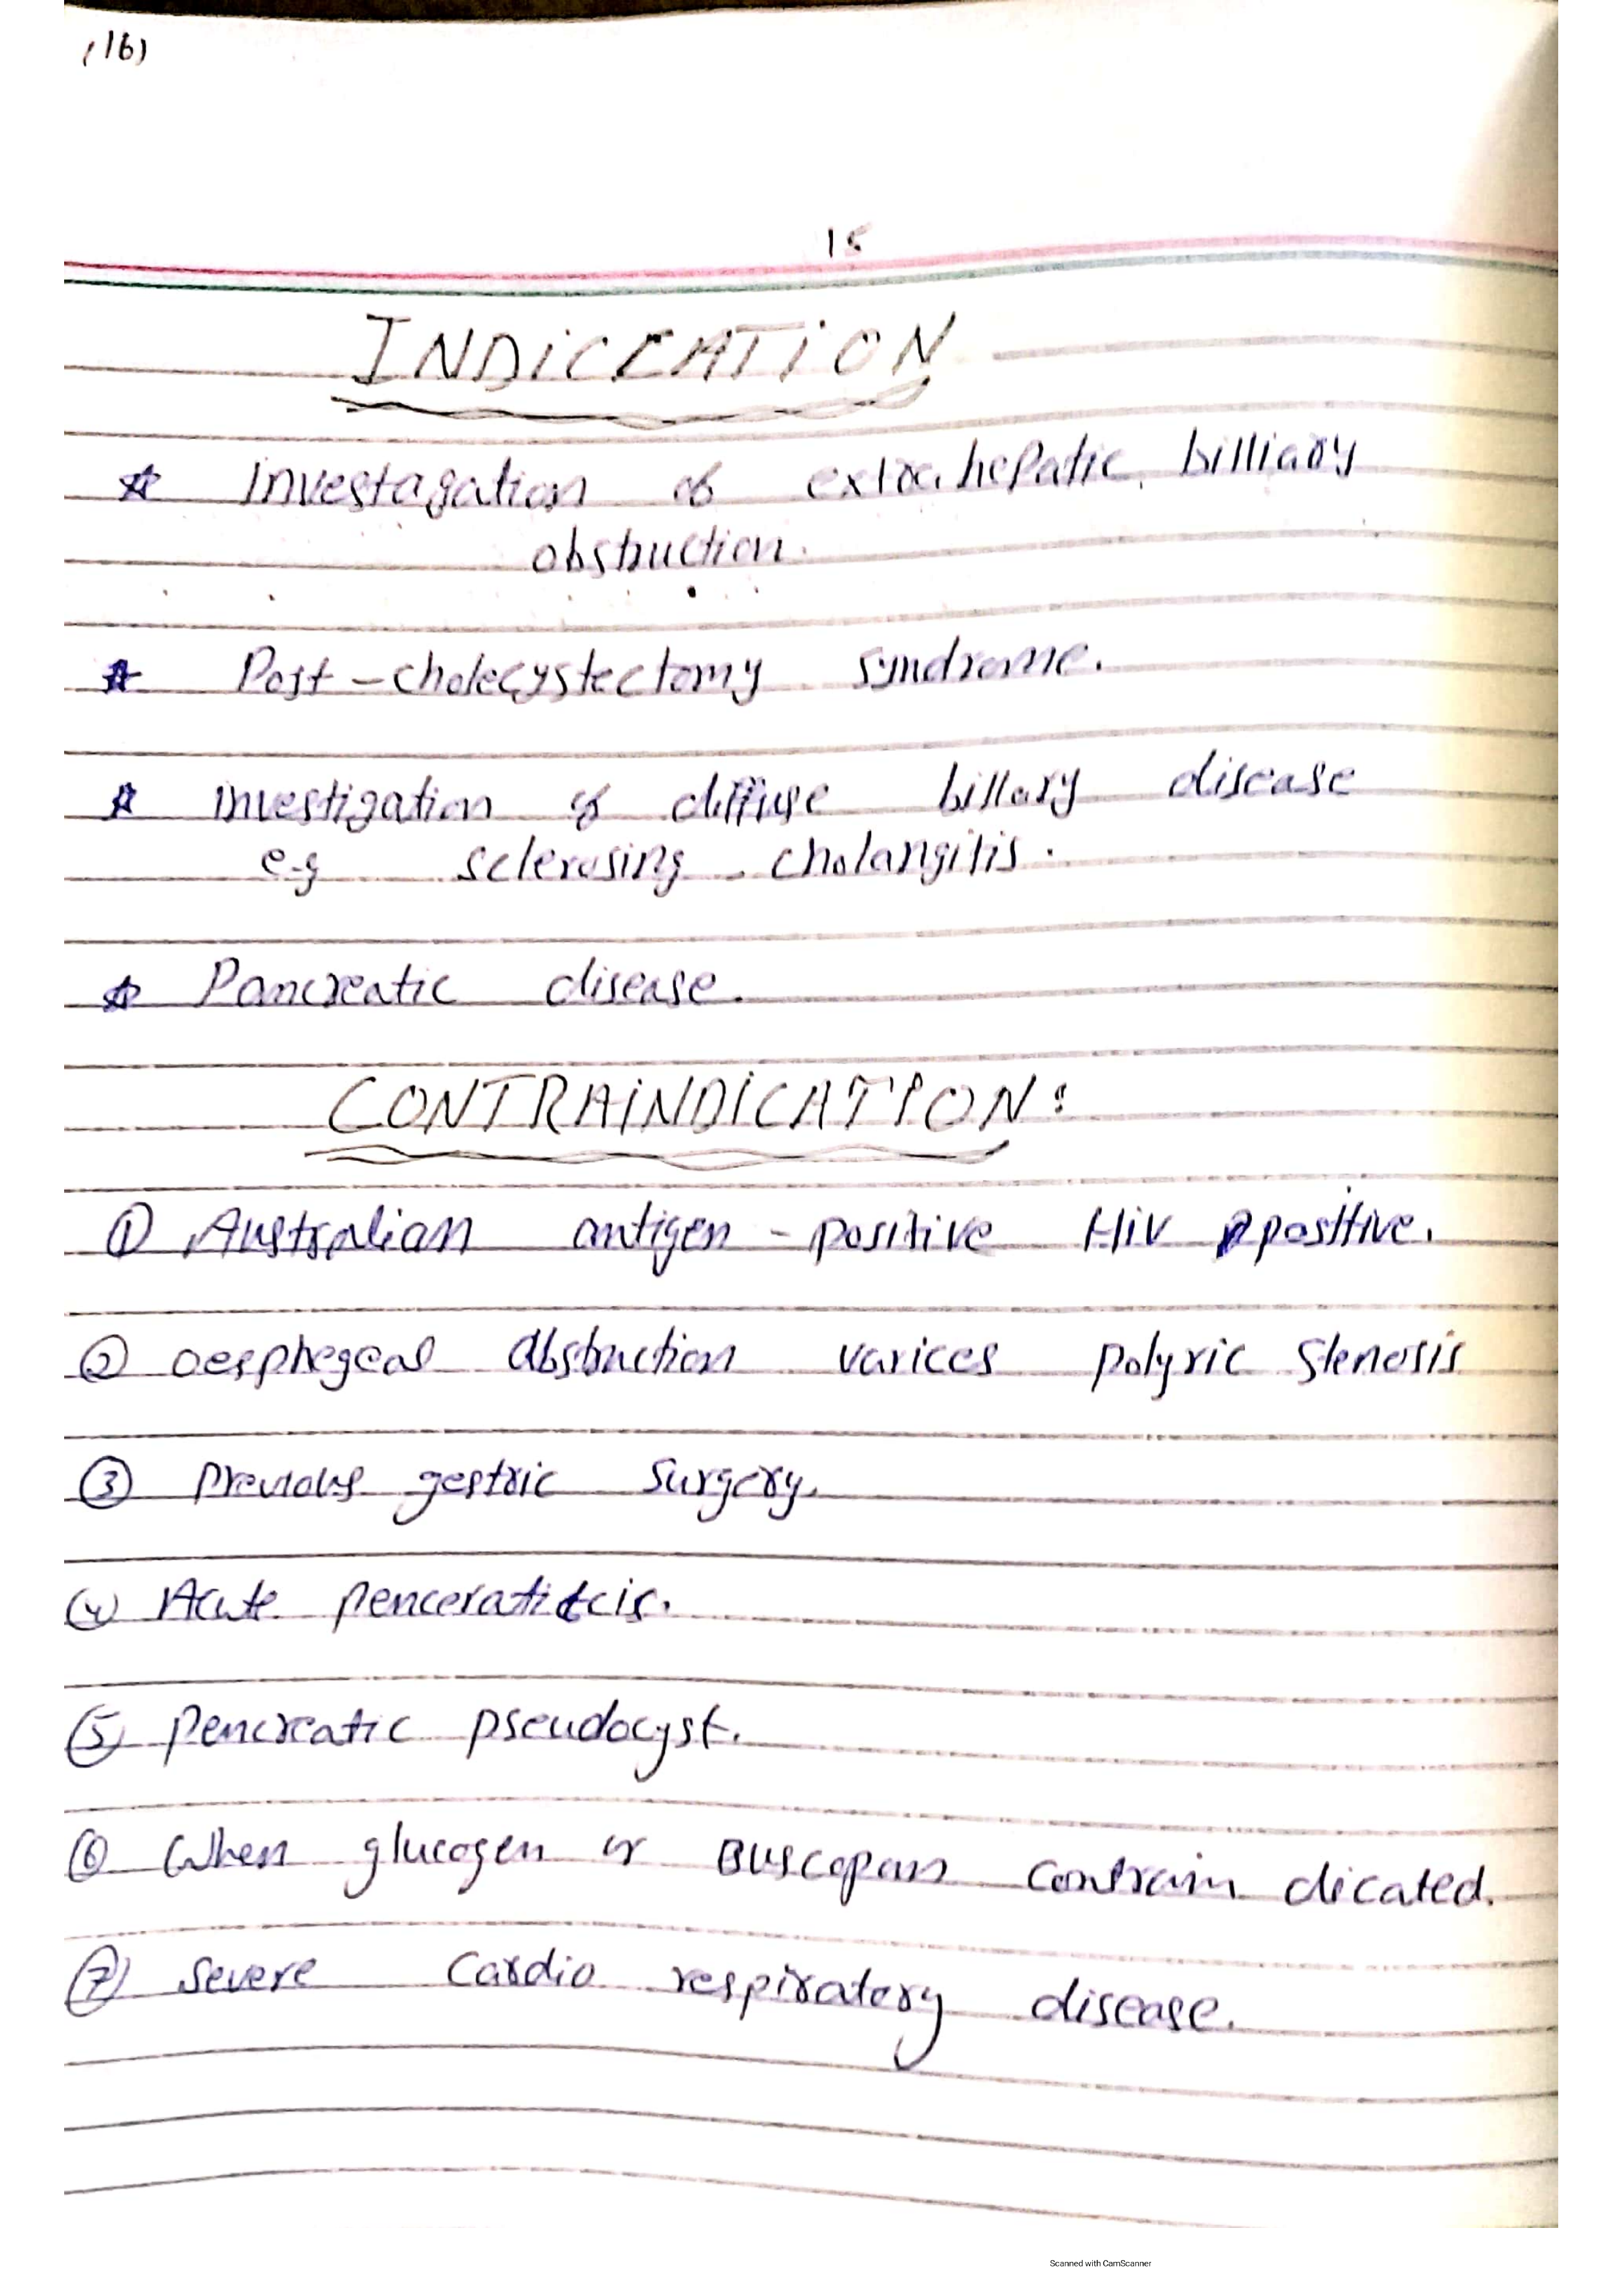 (16)
15
INDICCATION
☆ investagation of extra hepatic billiary
obstruction.
☆ Post-cholecystectomy syndrome.
☆ investigation of diffuse billary disease
e.g sclerosing cholangitis.
☆ Pancreatic disease.
CONTRAINDICATION:
① Australian antigen - positive HIV positive.
② oesphegeal abstruction varices polyric Stenosis
③ previous gestric surgery.
④ Acute penceratitcis.
⑤ pencreatic pseudocyst.
⑥ When glucogen or Buscopan contrain dicated.
⑦ Severe cardio respiratory disease.
Scanned with CamScanner